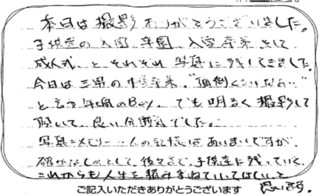 本日は撮影ありがとうございました。
子供達の入園、卒園、入学、卒業、そして
成人式と、それぞれ写真に残してきました。
今日は三男の中学卒業。"面倒くさいなぁ…"
と言う年頃のBoy。でも明るく撮影して
頂いて、良い雰囲気でした。
写真=メモリー…人の記憶はあいまいですが、
確かなものとして、後々まで、子供達に残っていく。
これからも人生を積み重ねていってほしいと
思います。
ご記入いただきありがとうございます